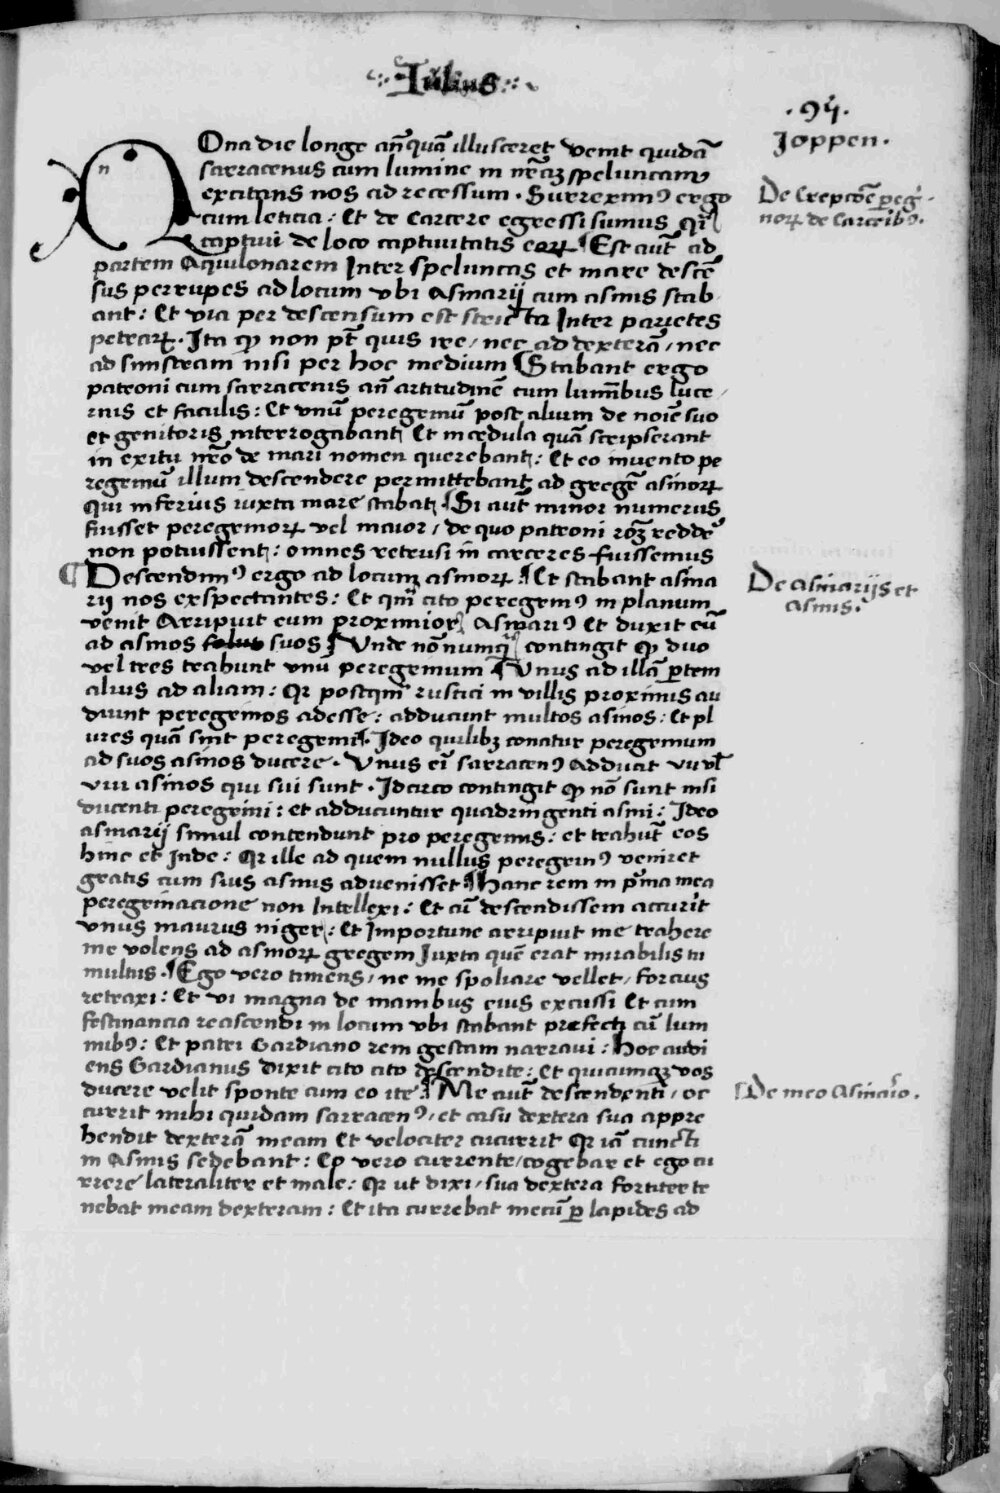 Iulius
.94.
Joppen.
NOna die longe anq̄ȝ quā illusceret venit quidā
sarracenus cum lumine in nr̄aȝ speluncam
excitans nos ad recessum . Surreximꝰ ergo
cum leticia : Et de carcere egressi sumus qͣsi
captiui de loco captiuitatis eoꝝ ¶ Est aut̄ ad
partem Aquilonarem Inter speluncas et mare descē
sus per rupes ad locum vbi Asinarij cum asinis stab
ant : Et via per descensum est stricta Inter parietes
petraꝝ . Ita ꝙ non pōt quis ire / nec ad dexterā / nec
ad sinistram nisi per hoc medium ¶ Stabant ergo
patroni cum sarracenis an̄ artitudinē cum luminibus luce /
rnis et faculis : Et vnū peregrinū post alium de noīe suo
et genitoris interrogabant Et in cedula quā scripserant
in exitu nr̄o de mari nomen querebant : Et eo inuento pe
regrinū illum descendere permittebant ad gregē asinoꝝ
qui inferius iuxta mare stabat ¶ Si aut̄ minor numerus
fuisset peregrinoꝝ vel maior / de quo patroni rōȝ reddē
non potuissent : omnes retrusi in carceres fuissemus
¶ Descendimꝰ ergo ad locum asinoꝝ ¶ Et stabant asina
rij nos exspectantes : Et qm̄ cito peregrinꝰ in planum
venit Arripuit eum proximior Asinariꝰ Et duxit eū
ad asinos suos ¶ Vnde nōnumqͣ contingit ꝙ duo
vel tres trahunt vnū peregrinum ¶ Vnus ad illā ꝑtem
alius ad aliam : Qr postqm̄ rustici in villis proximis au
diunt peregrinos adesse : adducunt multos asinos : Et pl
ures quā sint peregrini ¶ Ideo quilibȝ conatur peregrinum
ad suos asinos ducere . Vnus eī sarracenꝰ adducit vij vl̄
viij asinos qui sui sunt . Idcirco contingit ꝙ nō sunt nisi
ducenti peregrini : et adducuntur quadringenti asini : Ideo
asinarij simul contendunt pro peregrinis : et trahūt eos
hinc et Inde : Qr ille ad quem nullus peregrinꝰ veniret
gratis cum suis asinis aduenisset ¶ Hanc rem in pͥma mea
peregrinacione non Intellexi : Et cū descendissem accurit
vnus maurus niger : Et Importune arripuit me trahere
me volens ad asinoꝝ gregem Iuxta quē erat mirabilis tu
multus . ¶ Ego vero timens / ne me spoliare vellet / forcius
retraxi : Et vi magna de manibus eius excussi Et cum
festinancia reascendi in locum vbi stabant prefecti cū lum
inibꝰ : Et patri Gardiano rem gestam narraui : Hoc audi
ens Gardianus dixit cito cito descendite : Et quicumqȝ vos
ducere velit sponte cum eo ite ¶ Me aut̄ descendenti / oc
currit mihi quidam sarracenꝰ / et casu dextera sua appre
hendit dexterā meam Et velociter cucurrit Qr iā cuncti
in Asinis sedebant : Eo vero currente / cogebar et ego cu
rrere lateraliter et male : Qr ut dixi / sua dextera fortiter te
nebat meam dexteram : Et ita currebat mecū ꝑ lapides ad
De Ereptōe ꝑegͥ-
noꝝ de Carceribꝰ.
De Asinarijs et
asinis.
De meo Asinaͥo.